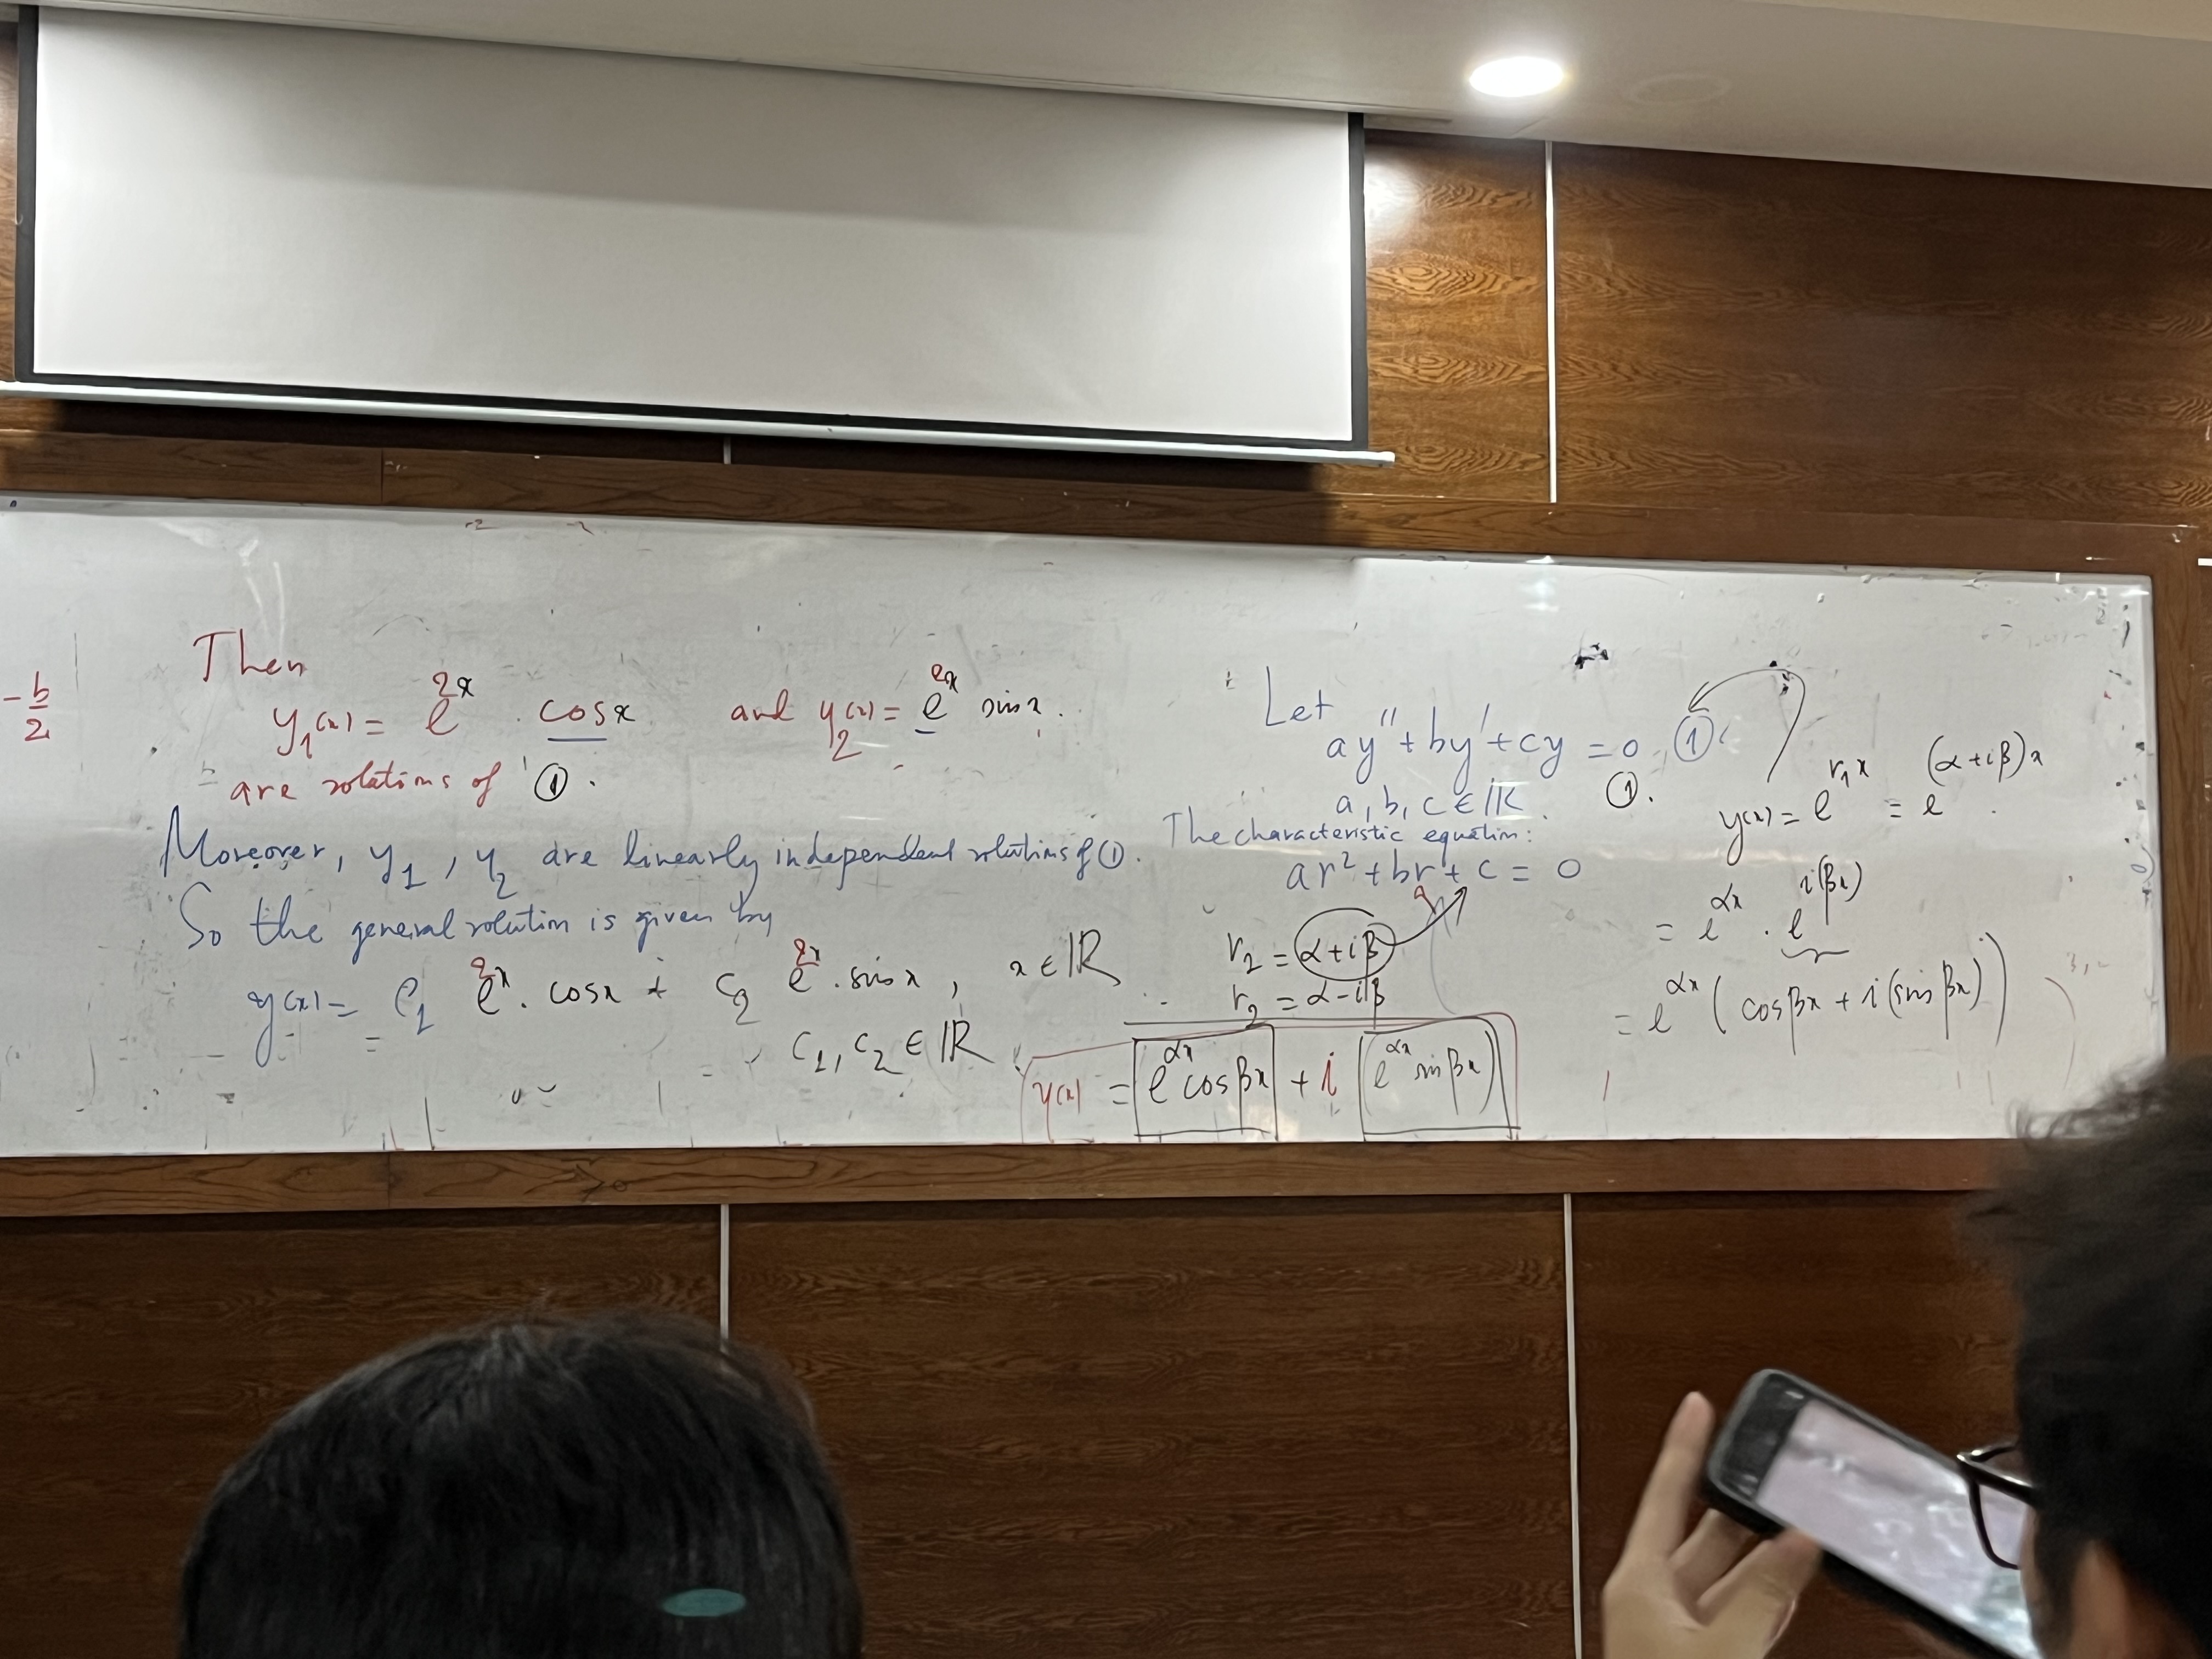 -b/2
Then
y₁(x) = e^2x . cosx and y₂(x) = e^2x sinx.
are solutions of ①.
Moreover, y₁, y₂ are linearly independent solutions of ①.
So the general solution is given by
y(x) = C₁ e^2x . cosx + C₂ e^2x . sinx, x ∈ ℝ
C₁, C₂ ∈ ℝ
Let
ay'' + by' + cy = 0 ①
a, b, c ∈ ℝ. ①.
The characteristic equation:
ar² + br + c = 0
r₂ = α + iβ
r₂ = α - iβ
y(x) = e^αx cosβx + i e^αx sinβx
y(x) = e^r₁x = e^(α+iβ)x.
= e^αx . e^i(βx)
= e^αx (cosβx + i(sinβx))